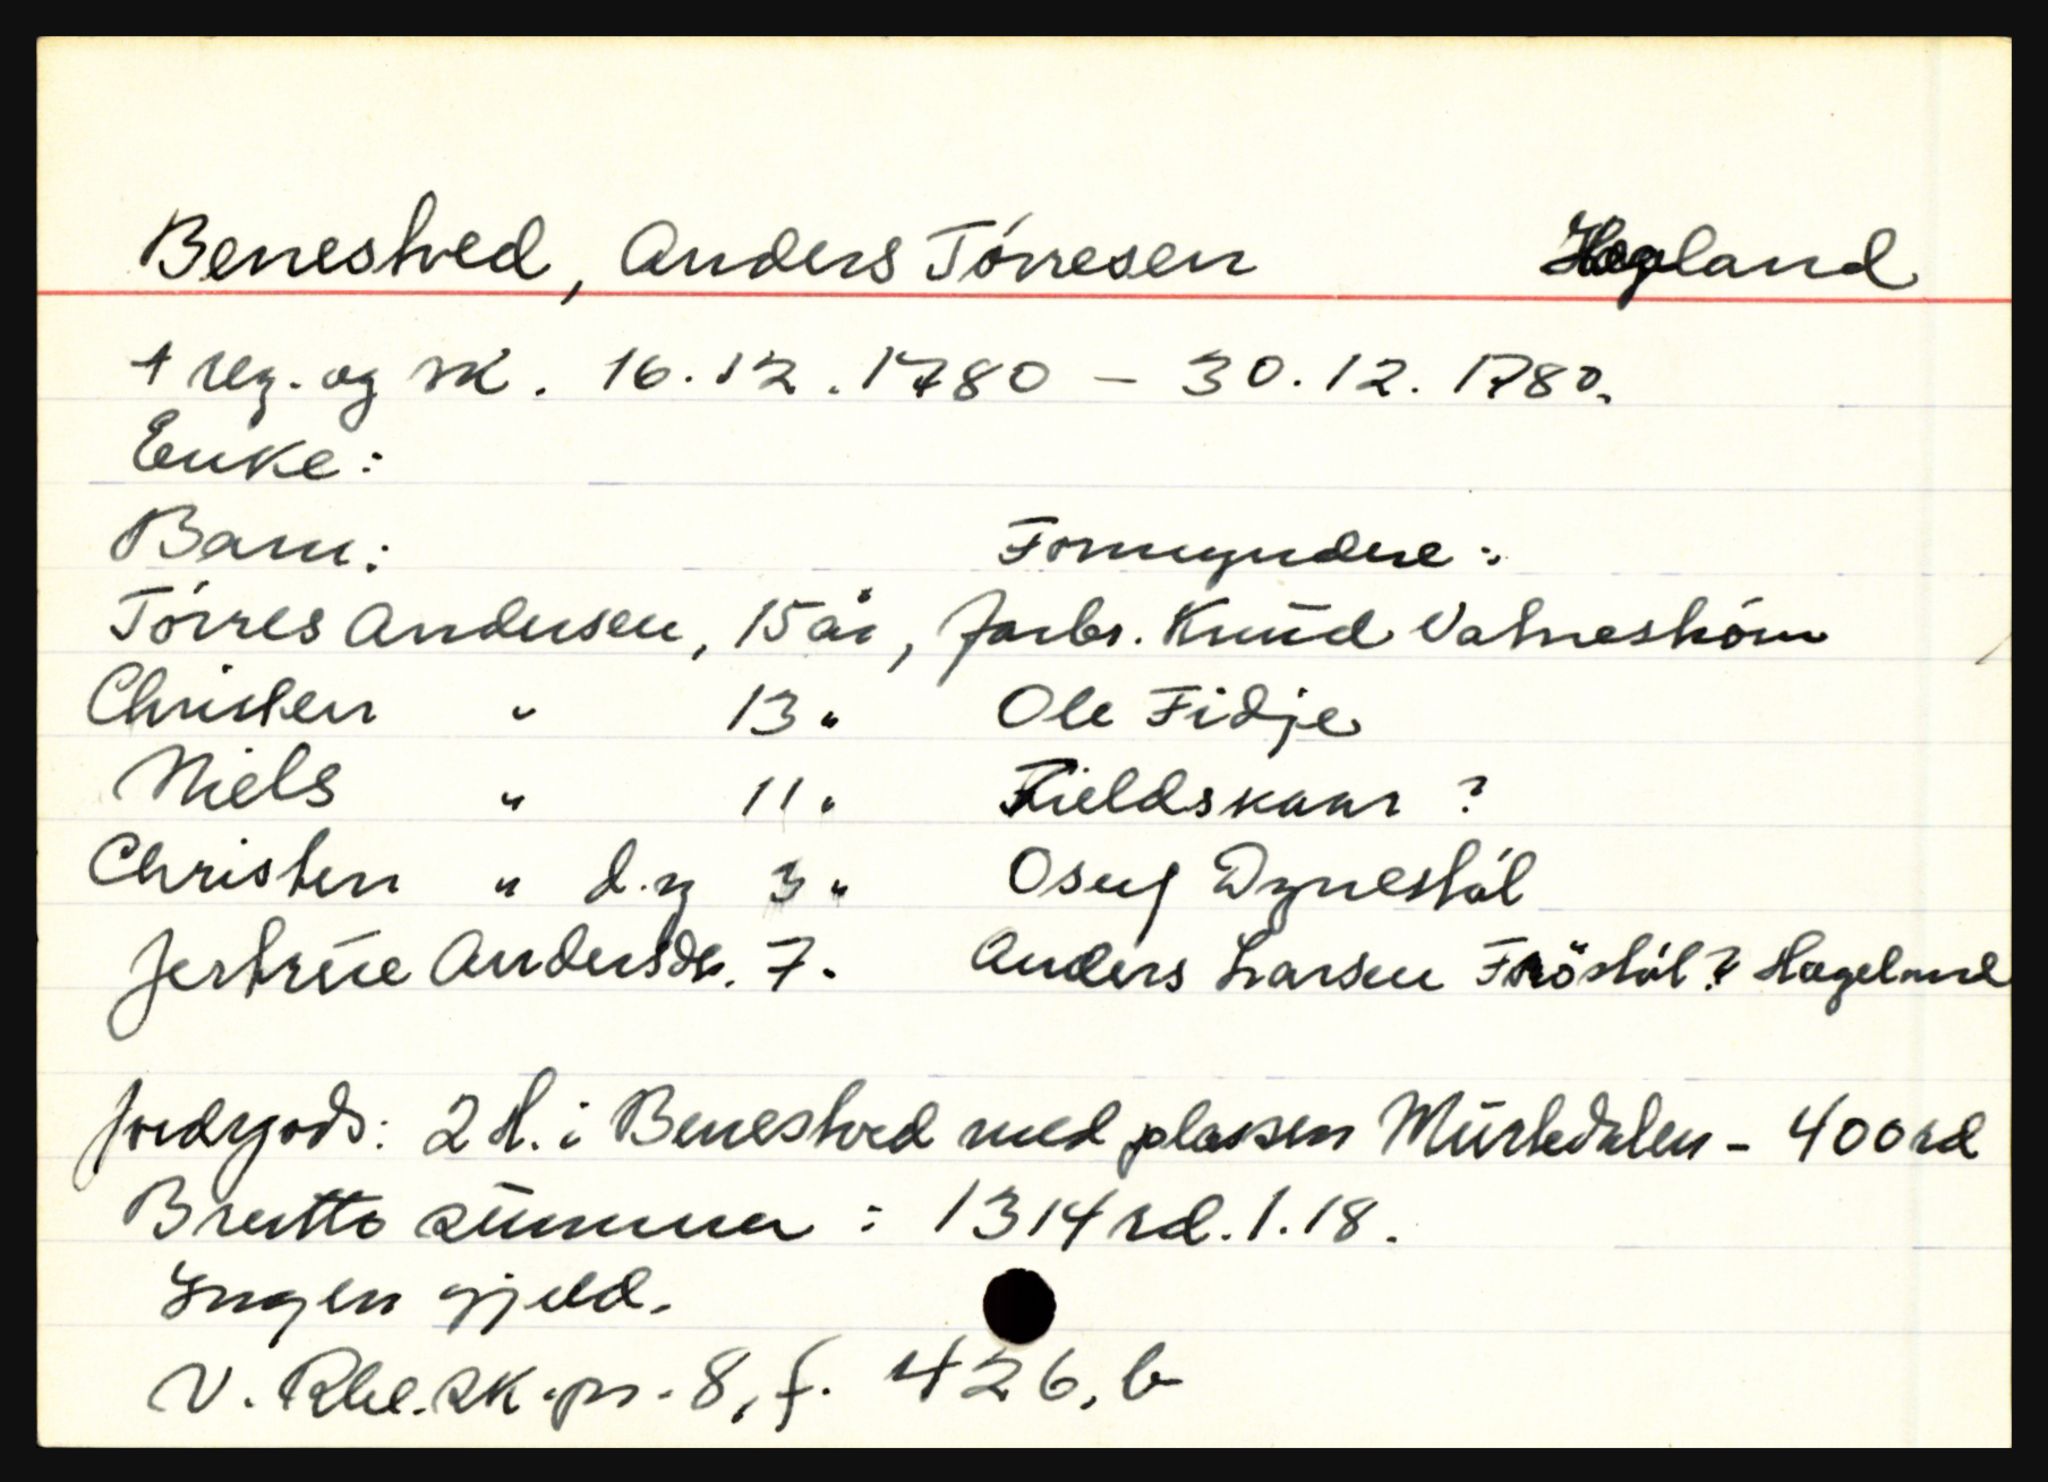 Benestved, Anders Tórresen Hægeland
+ reg. og sk. 16.12.1780 - 30.12.1780.
Enke:
Barn: Formyndere:
Tórres Andersen, 15 år, farbr. Knud Vatneström
Christen " 13 " Ole Fidje
Niels " 11 " Fieldskaar ?
Christen " d.y 3 " Osuf Dynestöl
Jertrue Andersdr. 7. Anders Larsen Fröstöl? Hægeland
Jordgods: 2 H. i Benestved med plassen Mürkdalen - 400 rd
Brutto summa : 1314 rd. 1. 18.
Ingen gjeld.
V. Rbl. sk.pr. 8, f. 426, b